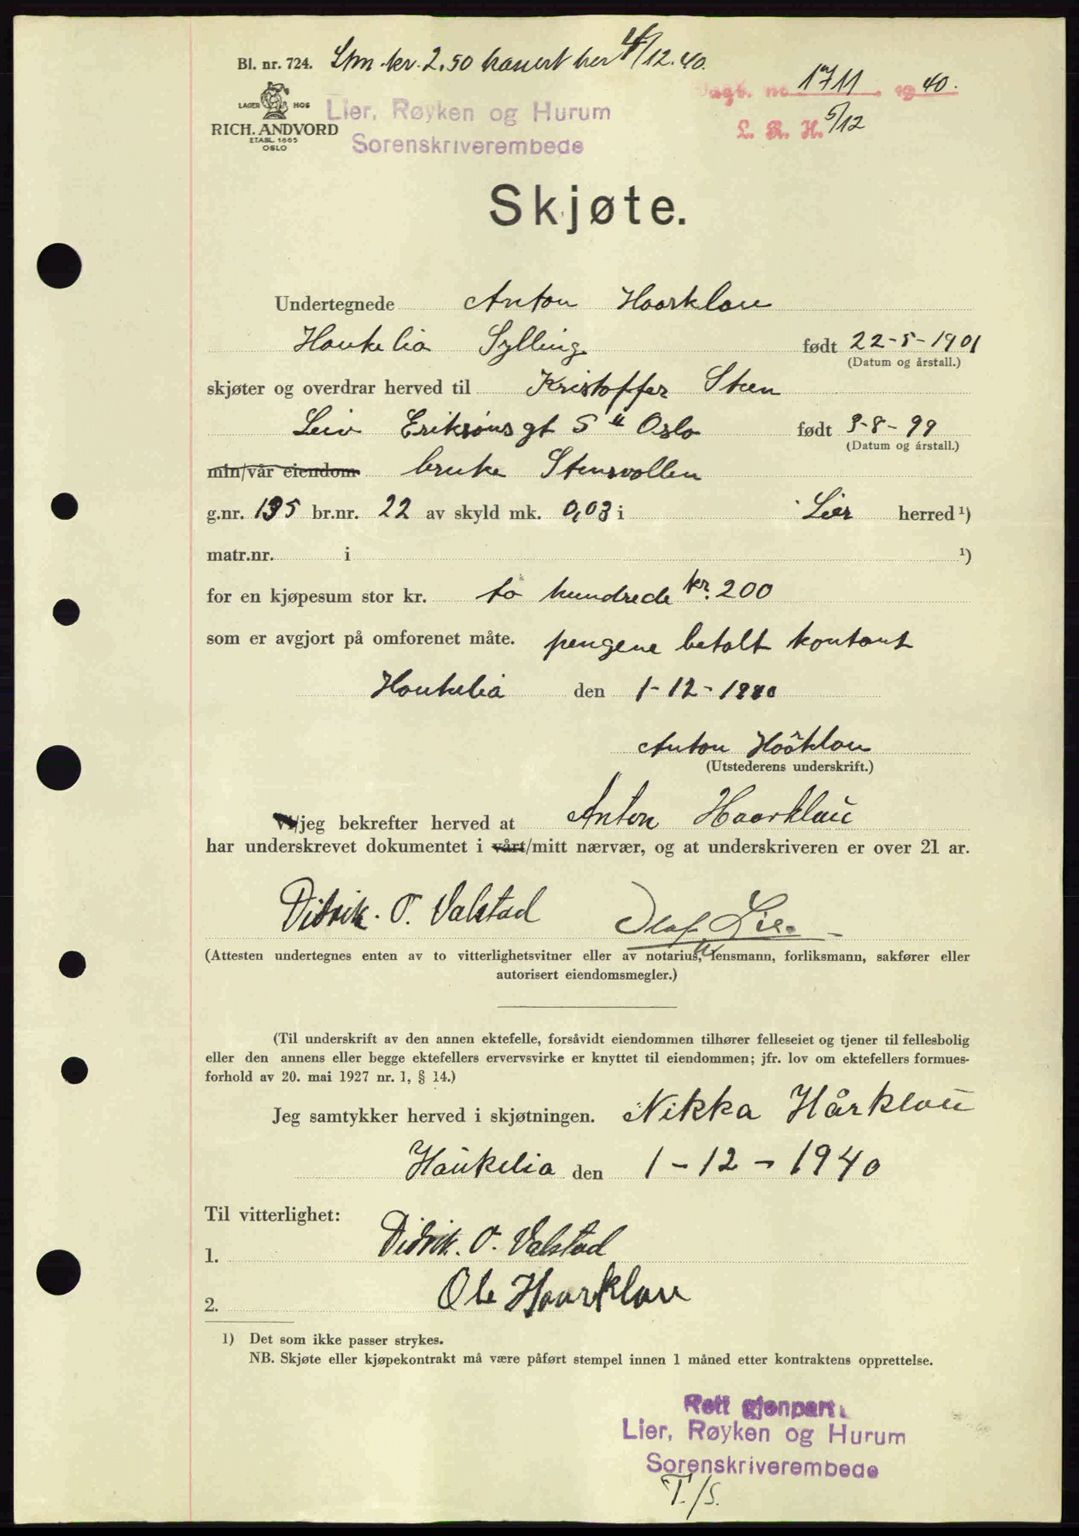 Bl. nr. 724. Stm. kr. 2.50 kassert her 4/12.40.
Dagb. nr. 1711, 1940.
L. R. H. 5/12
LAGER HOS
RICH. ANDVORD
ETABL. 1865
OSLO
Lier, Røyken og Hurum
Sorenskriverembede
Skjøte.
Undertegnede Anton Haarklau
Haukelia Sylling født 22-5-1901
(Datum og årstall.)
skjøter og overdrar herved til Kristoffer Steen
Leiv Eriksons gt 5 Oslo født 9-8-99
(Datum og årstall.)
min/vår eiendom bruke Stensvollen
g.nr. 135 br.nr. 22 av skyld mk. 0,03 i Lier herred ¹)
matr.nr. i ¹)
for en kjøpesum stor kr. to hundrede kr. 200
som er avgjort på omforenet måte. pengene betalt kontant
Haukelia den 1-12-1940
Anton Haarklau
(Utstederens underskrift.)
Vi/jeg bekrefter herved at Anton Haarklau
har underskrevet dokumentet i vårt/mitt nærvær, og at underskriveren er over 21 ar.
Didrik. O. Valstad Olaf Lie
(Attesten undertegnes enten av to vitterlighetsvitner eller av notarius, lensmann, forliksmann, sakfører eller
autorisert eiendomsmegler.)
(Til underskrift av den annen ektefelle, forsåvidt eiendommen tilhører felleseiet og tjener til fellesbolig
eller den annens eller begge ektefellers ervervsvirke er knyttet til eiendommen; jfr. lov om ektefellers formues-
forhold av 20. mai 1927 nr. 1, § 14.)
Jeg samtykker herved i skjøtningen. Nikka Hårklau
Haukelia den 1-12-1940
Til vitterlighet:
1. Didrik. O. Valstad
2. Ole Haarklau
1) Det som ikke passer strykes.
NB. Skjøte eller kjøpekontrakt må være påført stempel innen 1 måned etter kontraktens opprettelse.
Rett gjenpart.
Lier, Røyken og Hurum
Sorenskriverembede
T./S.